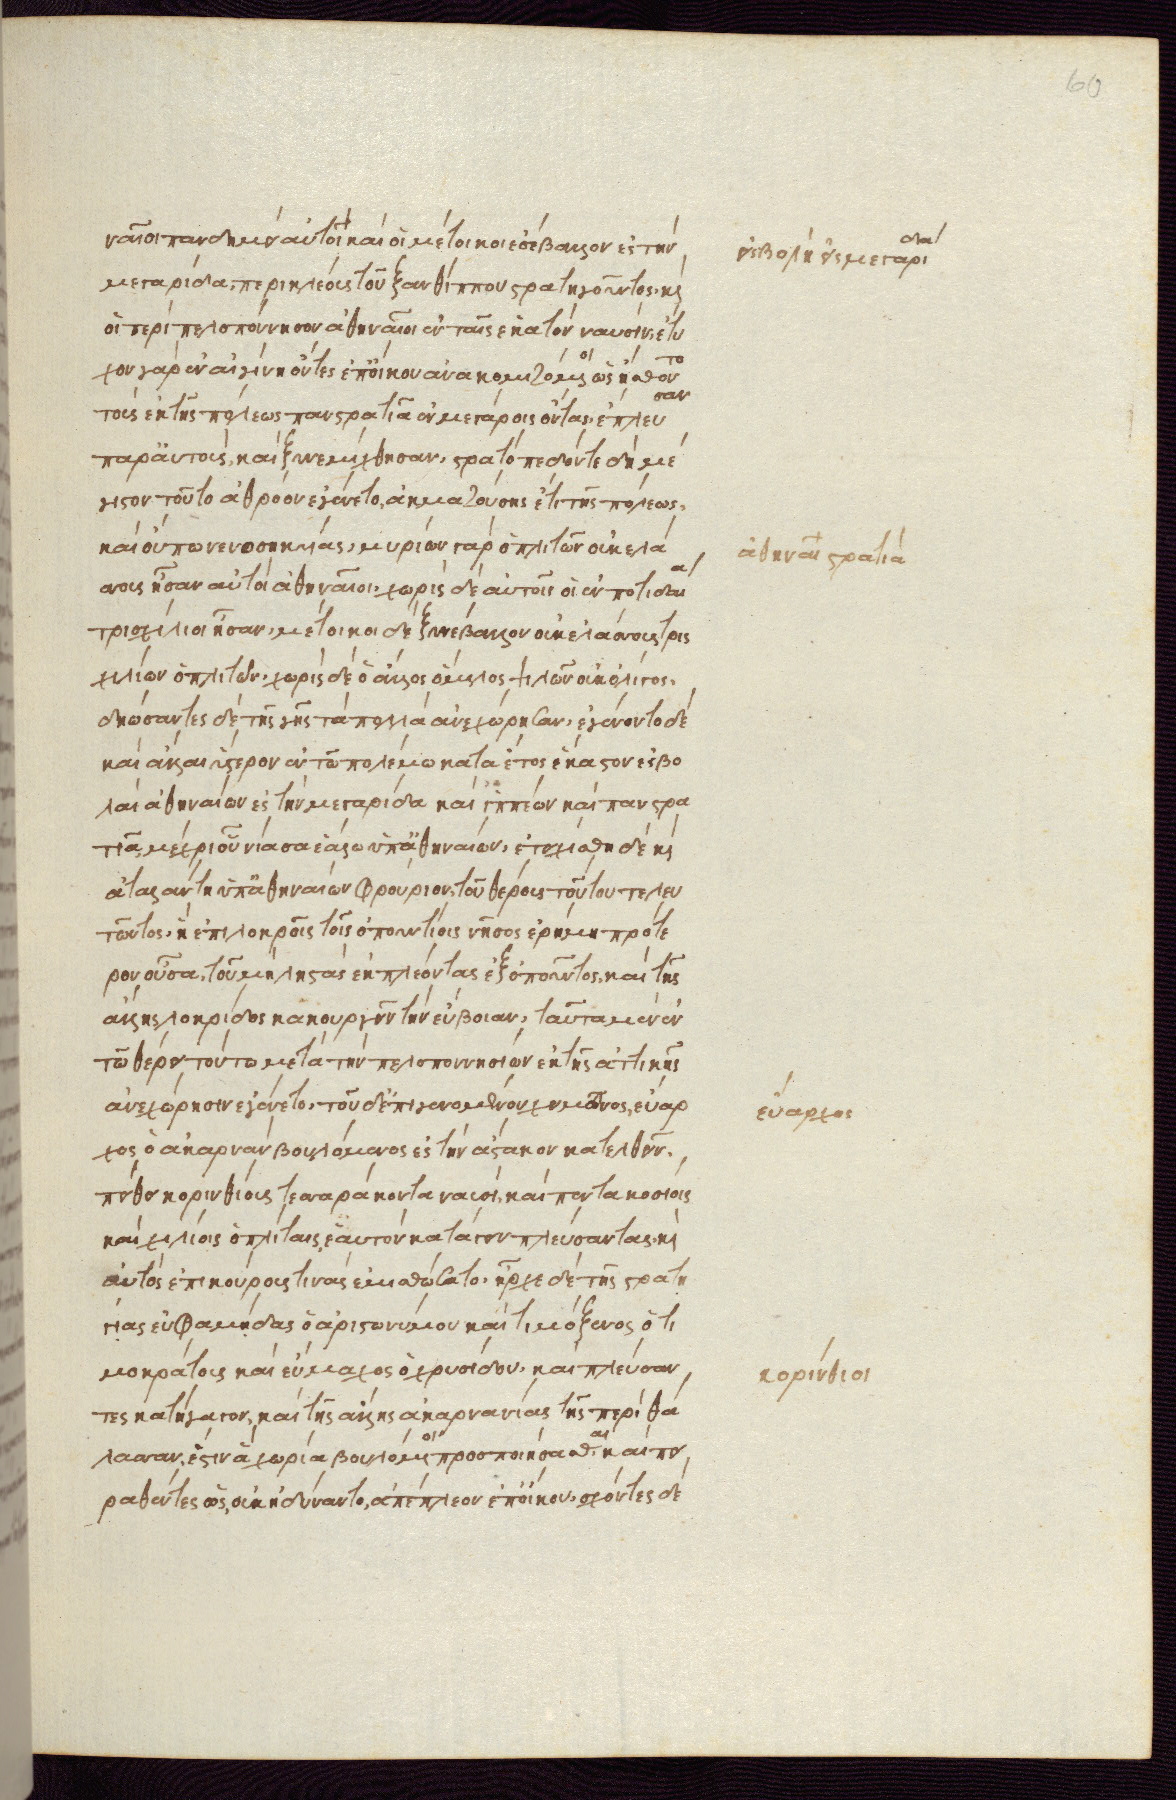 60
ναῖοι πανδημεὶ αὐτοὶ καὶ οἱ μέτοικοι ἐσέβαλλον ἐς τὴν
ἐσβολὴ ἐς μεγαρίδα
μεγαρίδα, περικλέους τοῦ ξανθίππου στρατηγοῦντος. κὶ
οἱ περὶ πελοπόννησον ἀθηναῖοι ἐν ταῖς ἑκατὸν ναυσὶν, ἔτυ
χον γὰρ ἐν αἰγίνη ὄντες ἐπ' οἴκου ἀνακομιζόμενοι ὡς ἤσθοντο
τοὺς ἐκ τῆς πόλεως πανστρατιᾶ ἐν μεγάροις ὄντας, ἔπλευσαν
παρ' αὐτοὺς, καὶ ξυνεμίχθησαν. στρατόπεδόν τε δὴ μέ
γιστον τοῦτο ἀθρόον ἐγένετο, ἀκμαζούσης ἔτι τῆς πόλεως,
καὶ οὔπω νενοσηκυίας. μυρίων γὰρ ὁπλιτῶν οὐκ ἐλά
ἀθηναίων στρατιά
σσους ἦσαν αὐτοὶ ἀθηναῖοι. χωρὶς δὲ αὐτοῖς οἱ ἐν ποτιδαία
τρισχίλιοι ἦσαν. μέτοικοι δὲ ξυνεσέβαλλον οὐκ ἐλάσσους τρισ
χιλίων ὁπλιτῶν. χωρὶς δὲ ὁ ἄλλος ὅμιλος ψιλῶν οὐκ ὀλίγος.
δηώσαντες δὲ τῆς γῆς τὰ πολλὰ ἀνεχώρησαν. ἐγένοντο δὲ
καὶ ἄλλαι ὕστερον ἐν τῶ πολέμω κατὰ ἔτος ἕκαστον ἐσβο
λαὶ ἀθηναίων ἐς τὴν μεγαρίδα καὶ ἱππέων καὶ πανστρα
τιᾶ, μέχρι οὗ νίσαια ἑάλω ὑπ' ἀθηναίων. ἐτειχίσθη δὲ κὶ
ἀταλάντη ὑπ' ἀθηναίων φρούριον, τοῦ θέρους τούτου τελευ
τῶντος. ἡ ἐπὶ λοκροῖς τοῖς ὀπουντίοις νῆσος ἐρήμη πρότε
ρον οὖσα, τοῦ μὴ ληστὰς ἐκπλέοντας ἐξ ὀποῦντος, καὶ τῆς
ἄλλης λοκρίδος κακουργεῖν τὴν εὔβοιαν. ταῦτα μὲν ἐν
τῶ θέρει τούτω μετὰ τὴν πελοποννησίων ἐκ τῆς ἀττικῆς
ἀναχώρησιν ἐγένετο. τοῦ δ' ἐπιγενομένου χειμῶνος, εὔαρ
εὔαρχος
χος ὁ ἀκαρνὰν βουλόμενος ἐς τὴν ἀστακὸν κατελθεῖν,
πείθει κορινθίους τεσσαράκοντα ναυσὶ, καὶ πεντακοσίοις
καὶ χιλίοις ὁπλίταις, ἑαυτὸν κατάγειν πλεύσαντας. κὶ
αὐτὸς ἐπικούρους τινὰς ἐμισθώσατο. ἦρχε δὲ τῆς στρατη
γίας εὐφαμίδας ὁ ἀριστωνύμου καὶ τιμόξενος ὁ τι
μοκράτους καὶ εὔμαχος ὁ χρυσίδου. καὶ πλεύσαν
κορίνθιοι
τες κατήγαγον, καὶ τῆς ἄλλης ἀκαρνανίας τῆς περὶ θά
λασσαν, ἔστιν ἃ χωρία βουλόμενοι προσποιήσασθαι καὶ πει
ραθέντες ὡς, οὐκ ἠδύναντο, ἀπέπλεον ἐπ' οἴκου. σχόντες δὲ